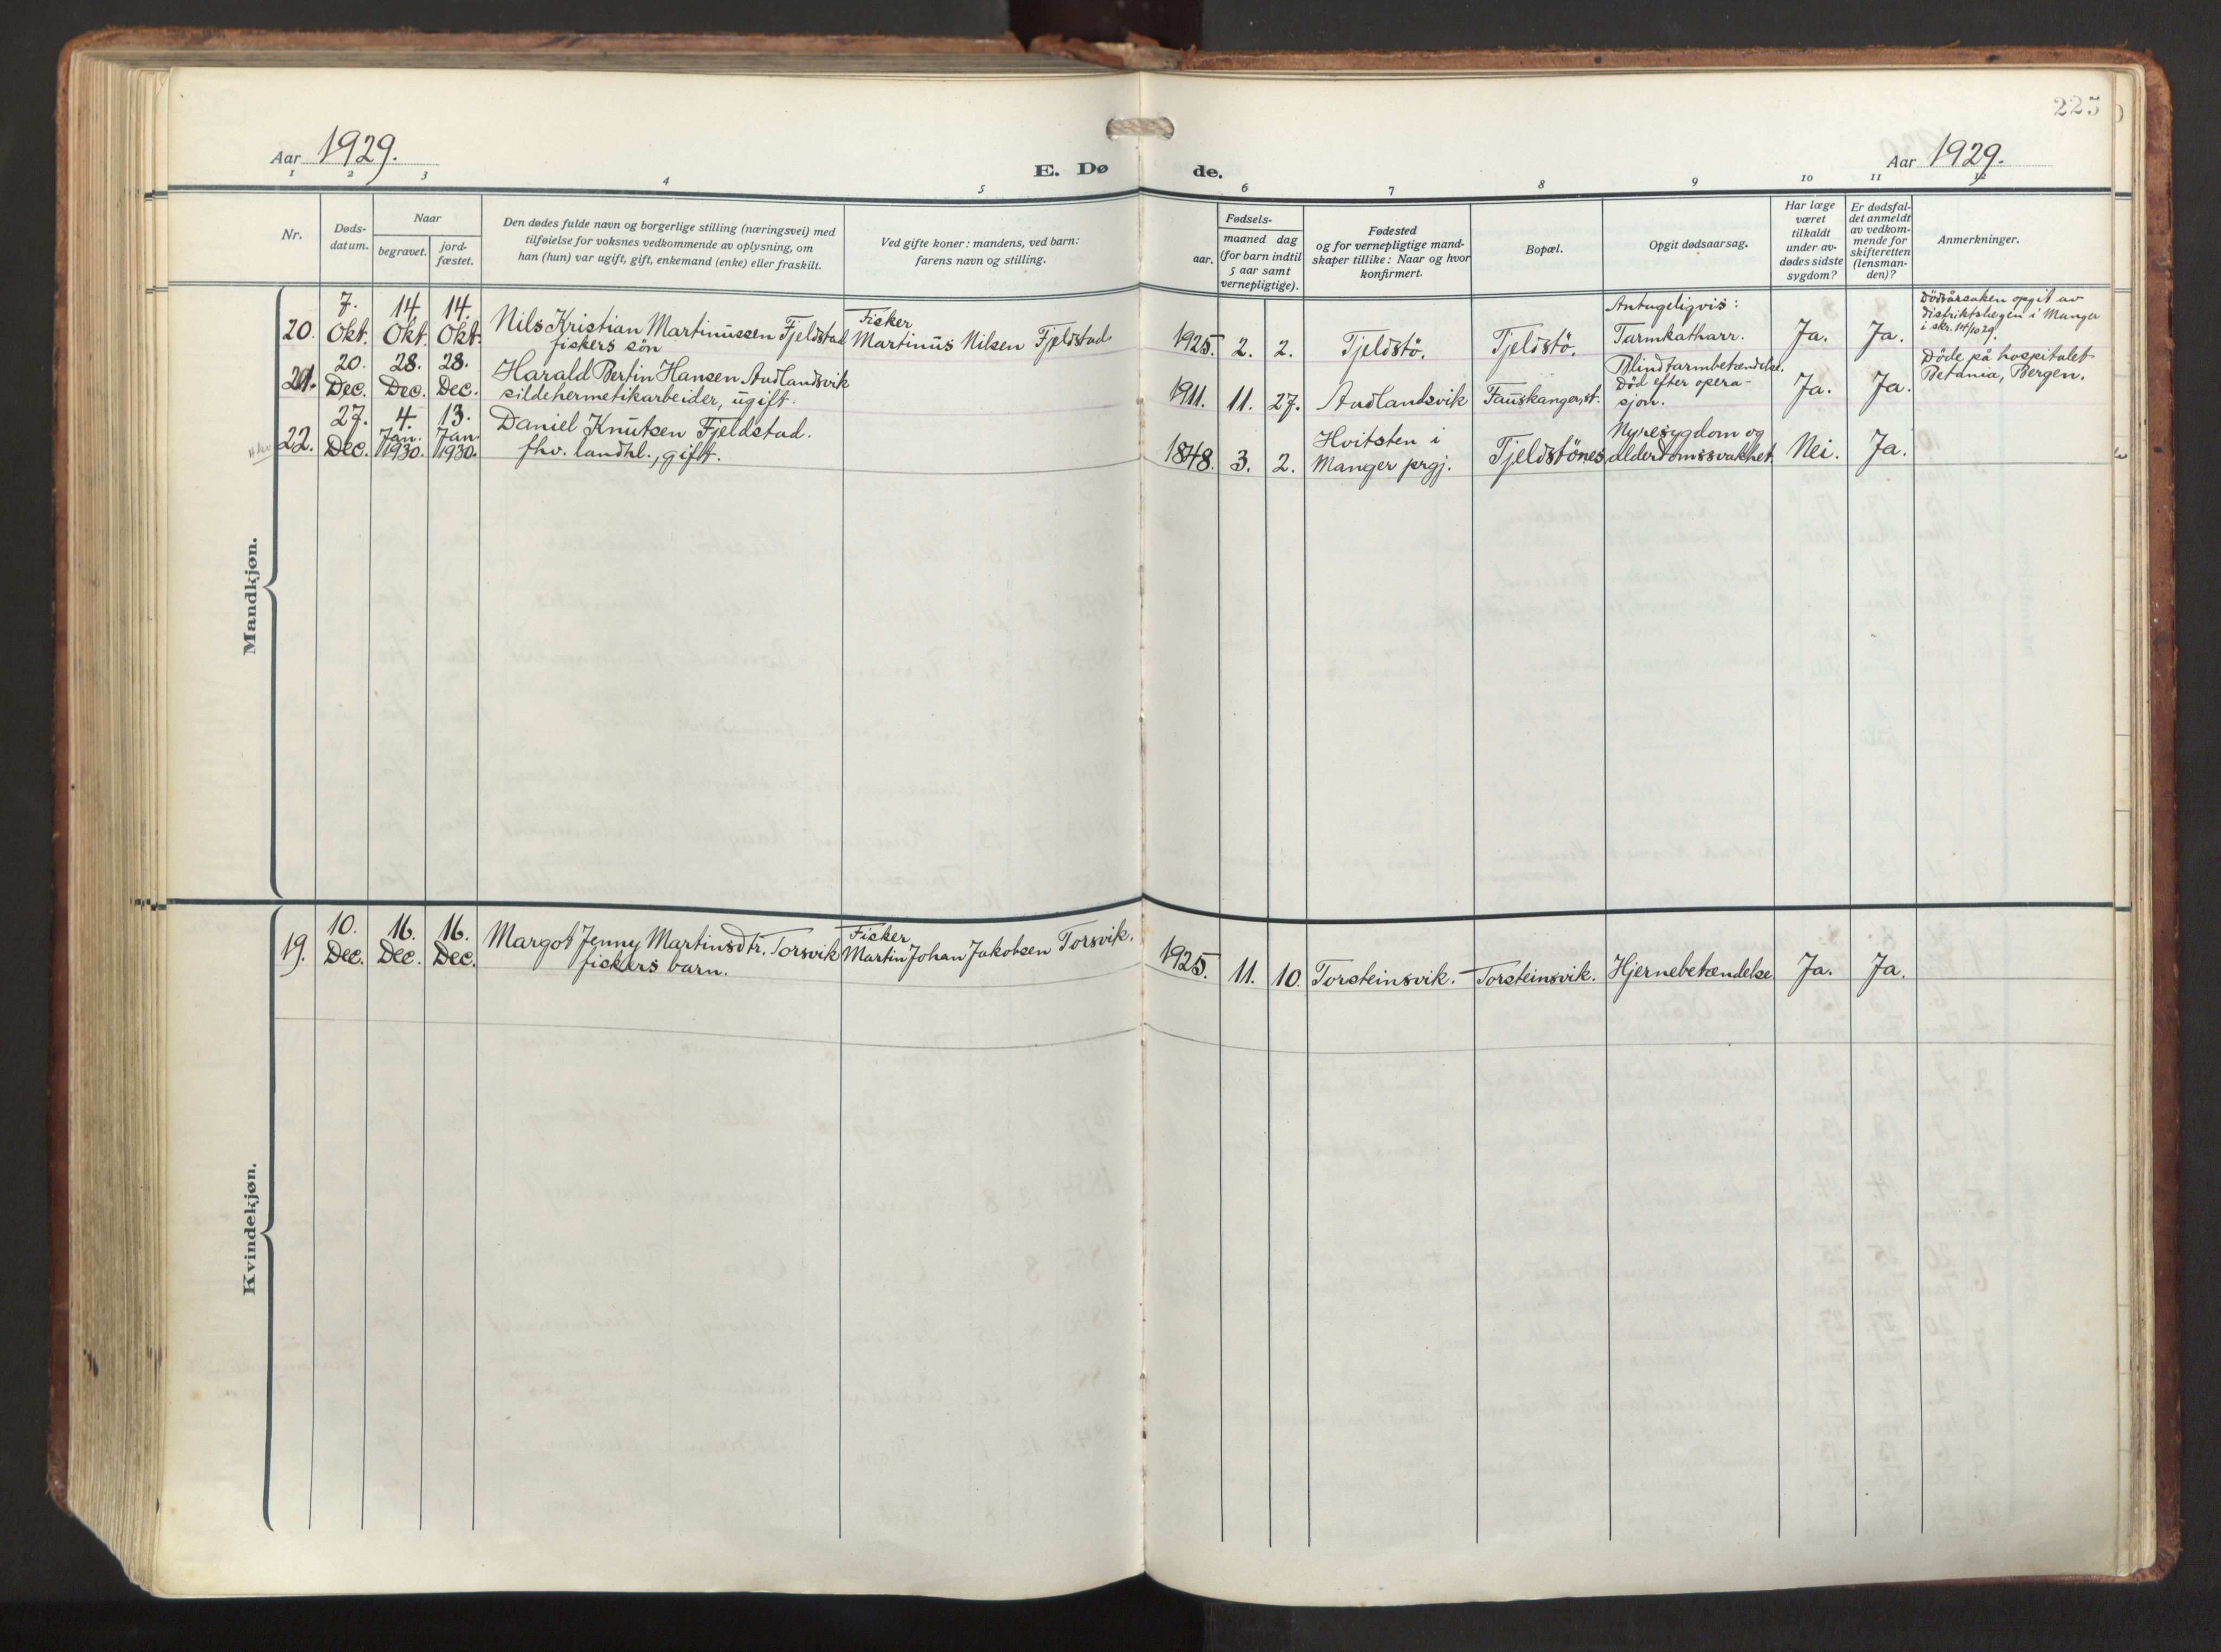 225
Aar 1929.
E. Dø
de.
Aar 1929.
1 2 3 4 5 6 7 8 9 10 11 12
Nr.
Døds-
datum.
Naar
begravet.
jord-
fæstet.
Den dødes fulde navn og borgerlige stilling (næringsvei) med
tilføielse for voksnes vedkommende av oplysning, om
han (hun) var ugift, gift, enkemand (enke) eller fraskilt.
Ved gifte koner: mandens, ved barn:
farens navn og stilling.
Fødsels-
aar.
maaned dag
(for barn indtil
5 aar samt
vernepligtige).
Fødested
og for vernepligtige mand-
skaper tillike: Naar og hvor
konfirmert.
Bopæl.
Opgit dødsaarsag.
Har læge
været
tilkaldt
under av-
dødes sidste
sygdom?
Er dødsfal-
det anmeldt
av vedkom-
mende for
skifteretten
(lensman-
den)?
Anmerkninger.
Mandkjøn.
20.
7.
Okt.
14.
Okt.
14.
Okt.
Nils Kristian Martinussen Fjeldstad
fiskers sön
Fisker
Martinus Nilsen Fjeldstad
1925. 2. 2.
Tjeldstö.
Tjeldstö.
Antageligvis:
Tarmkatharr.
Ja.
Ja.
Dödsårsaken opgit av
distriktslægen i Manger
i skr. 14/10 29.
21.
20.
Dec.
28.
Dec.
28.
Dec.
Harald Bertin Hansen Audlandsvik
sildehermetikarbeider, ugift.
1911. 11. 27.
Audlandsvik
Fauskanger, st.
Blindtarmbetændelse.
Död efter opera-
sjon.
Ja.
Ja.
Döde på hospitalet
Betania, Bergen.
22.
27.
Dec.
4.
Jan.
1930.
13.
Jan.
1930.
Daniel Knutsen Fjeldstad.
fhv. landhl., gift.
1848. 3. 2.
Hvitsten i
Manger prgj.
Tjeldstönes
Nyresygdom og
alderdomssvakhet.
Nei.
Ja.
Kvindekjøn.
19.
10.
Dec.
16.
Dec.
16.
Dec.
Margot Jenny Martinsdtr. Torsvik
fiskers barn.
Fisker
Martin Johan Jakobsen Torsvik.
1925. 11. 10.
Torsteinsvik.
Torsteinsvik.
Hjernebetændelse
Ja.
Ja.